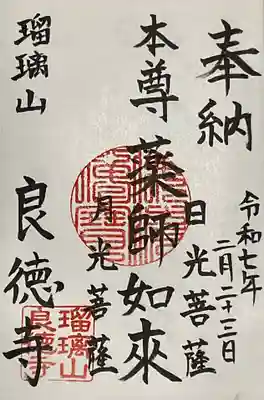 奉納
令和七年
二月二十三日
本尊 薬師如來
日光菩薩
月光菩薩
瑠璃山
良徳寺
瑠璃山
良徳寺